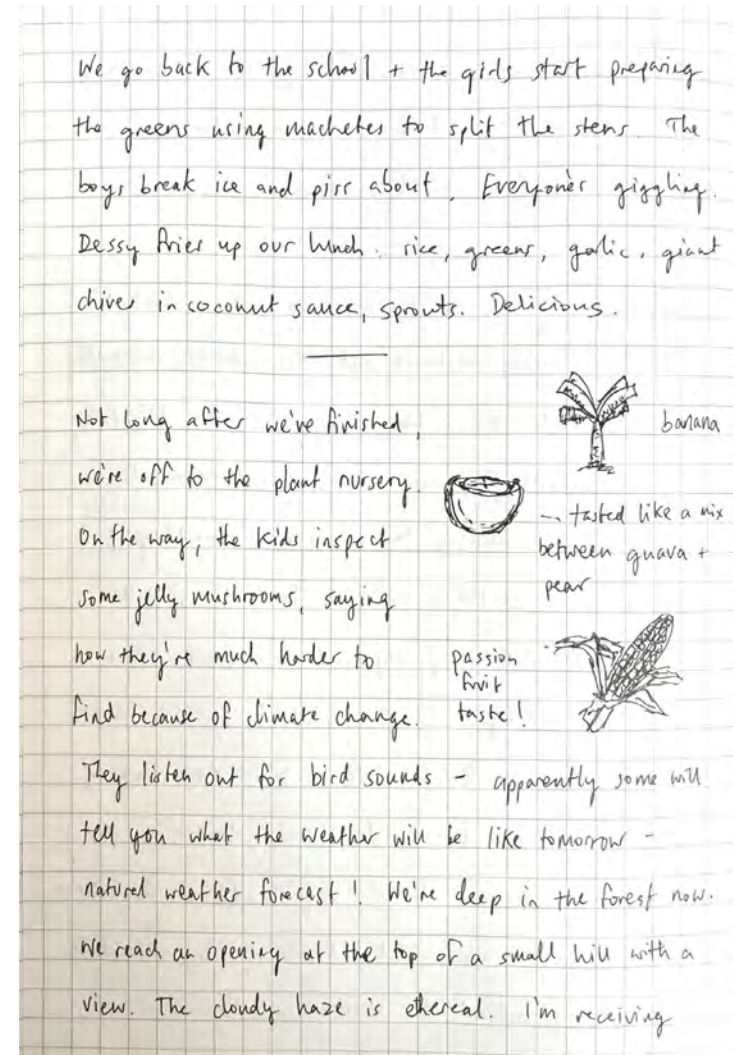 We go back to the school + the girls start preparing
the greens using machetes to split the stems. The
boys break ice and piss about. Everyone's giggling.
Dessy fries up our lunch: rice, greens, garlic, giant
chives in coconut sauce, sprouts. Delicious.
Not long after we've finished,
we're off to the plant nursery.
On the way, the kids inspect
some jelly mushrooms, saying
how they're much harder to
find because of climate change.
banana
- tasted like a mix
between guava +
pear
passion
fruit
taste!
They listen out for bird sounds - apparently some will
tell you what the weather will be like tomorrow -
natural weather forecast! We're deep in the forest now.
We reach an opening at the top of a small hill with a
view. The cloudy haze is ethereal. I'm receiving